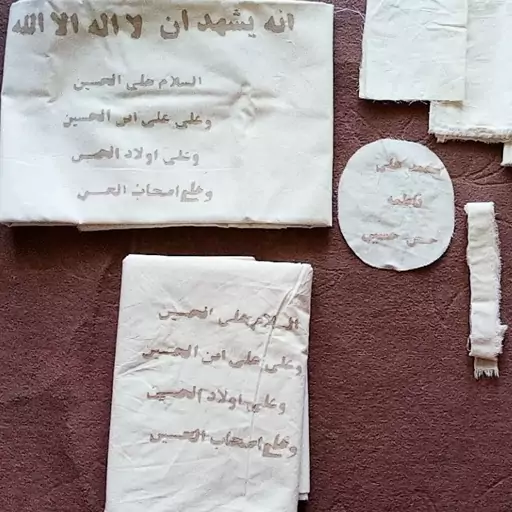 انه يشهد ان لا اله الا الله
السلام على الحسين
وعلى على ابن الحسين
وعلى اولاد الحسين
وعلى اصحاب الحسين
محمد على
فاطمه
حسن حسين
السلام على الحسين
وعلى على ابن الحسين
وعلى اولاد الحسين
وعلى اصحاب الحسين